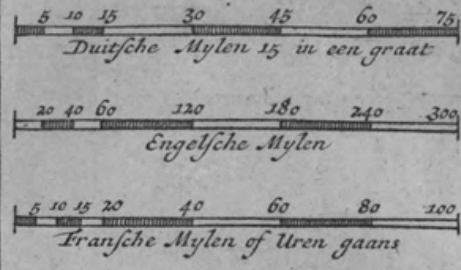 5 10 15 30 45 60 75
Duitſche Mylen 15 in een graat
20 40 60 120 180 240 300
Engelſche Mylen
5 10 15 20 40 60 80 100
Franſche Mylen of Uren gaans